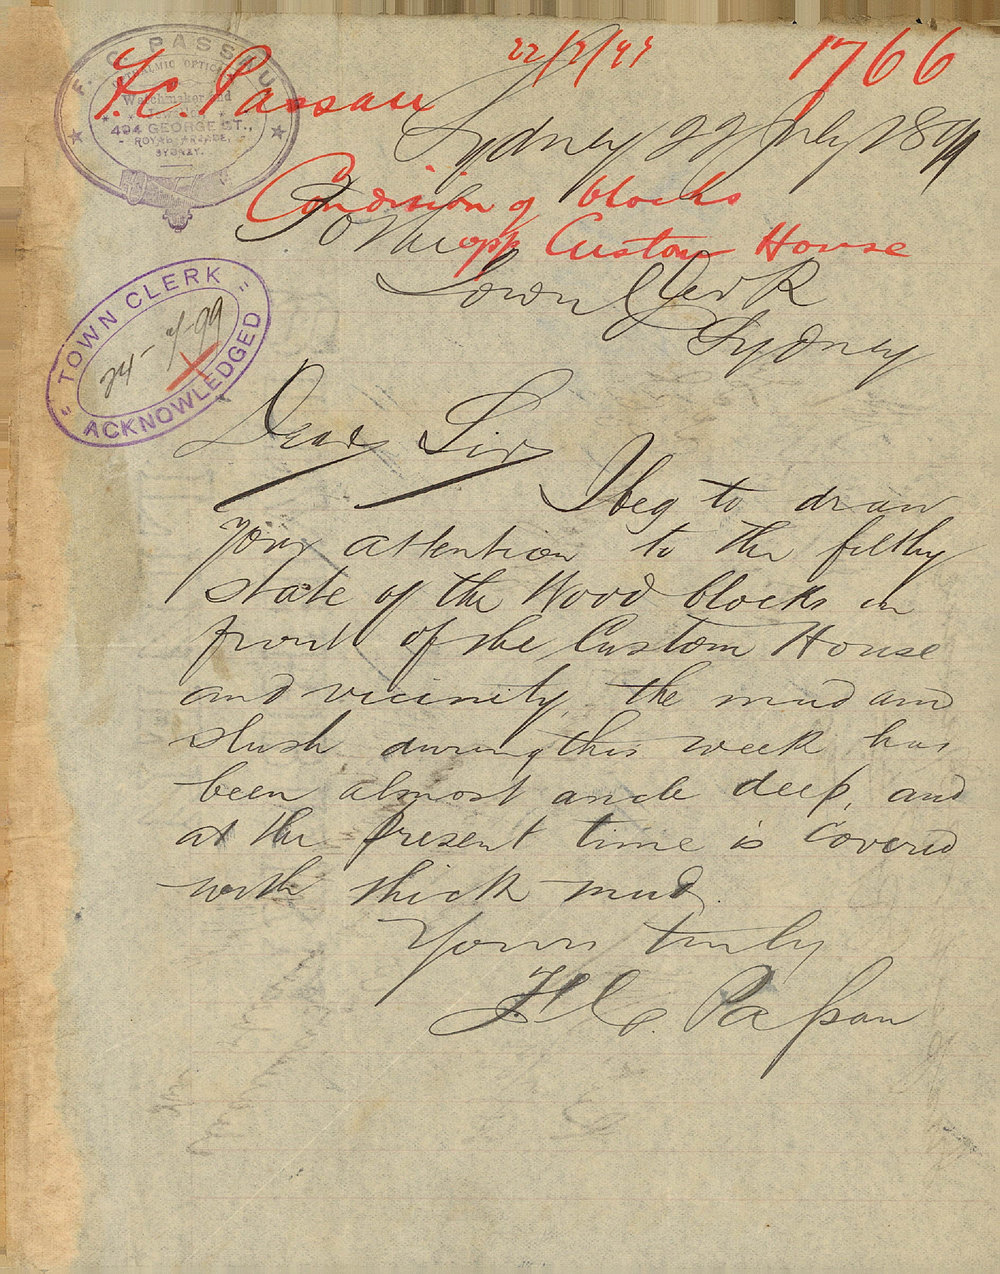 F. C. PASSAU
OPHTHALMIC OPTICIAN
Watchmaker and
Jeweller
494 GEORGE ST.,
ROYAL ARCADE,
SYDNEY.
F.C. Passau
22/7/99
1766
Sydney 22 July 1899
Condision of blocks
opp Custom House
To the
Town Clerk
Sydney
TOWN CLERK
24-7-99
ACKNOWLEDGED
Dear Sir
I beg to draw
your attention to the filthy
state of the Wood blocks in
front of the Custom House
and vicinity, the mud and
slush during this week has
been almost ancle deep, and
at the present time is covered
with thick mud.
Yours truly
F C. Passau